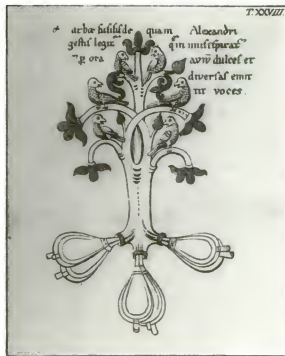 T. XXVIII
arbor fusilis de quam Alexandri
gestis legit q in missi spirat
ora aviū dulces et
diversas emit
tit voces.